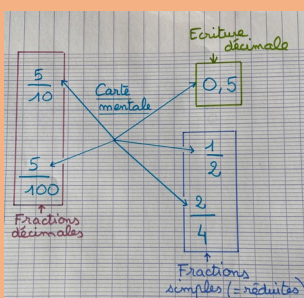 Ecriture
décimale
0,5
5
10
Carte
mentale
1
2
5
100
2
4
Fractions
décimales
Fractions
simples (= réduites)